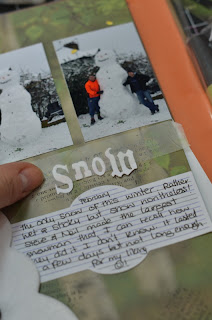 Snow
February
The only snow of this winter. Rather
wet & sticky but snow nonetheless!
Steve & Neil made the largest
snowman that I can recall. How
they did it I don't know. It lasted
a few days but not long enough
for my liking